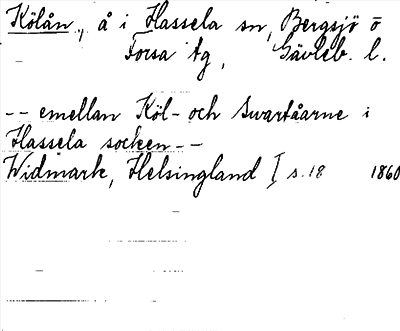 Kölån, å i Hassela sn, Bergsjö o
Forsa tg, Gävleb. l.
-- emellan Köl- och Svartåarne i
Hassela socken --
Widmark, Helsingland I s. 18 1860